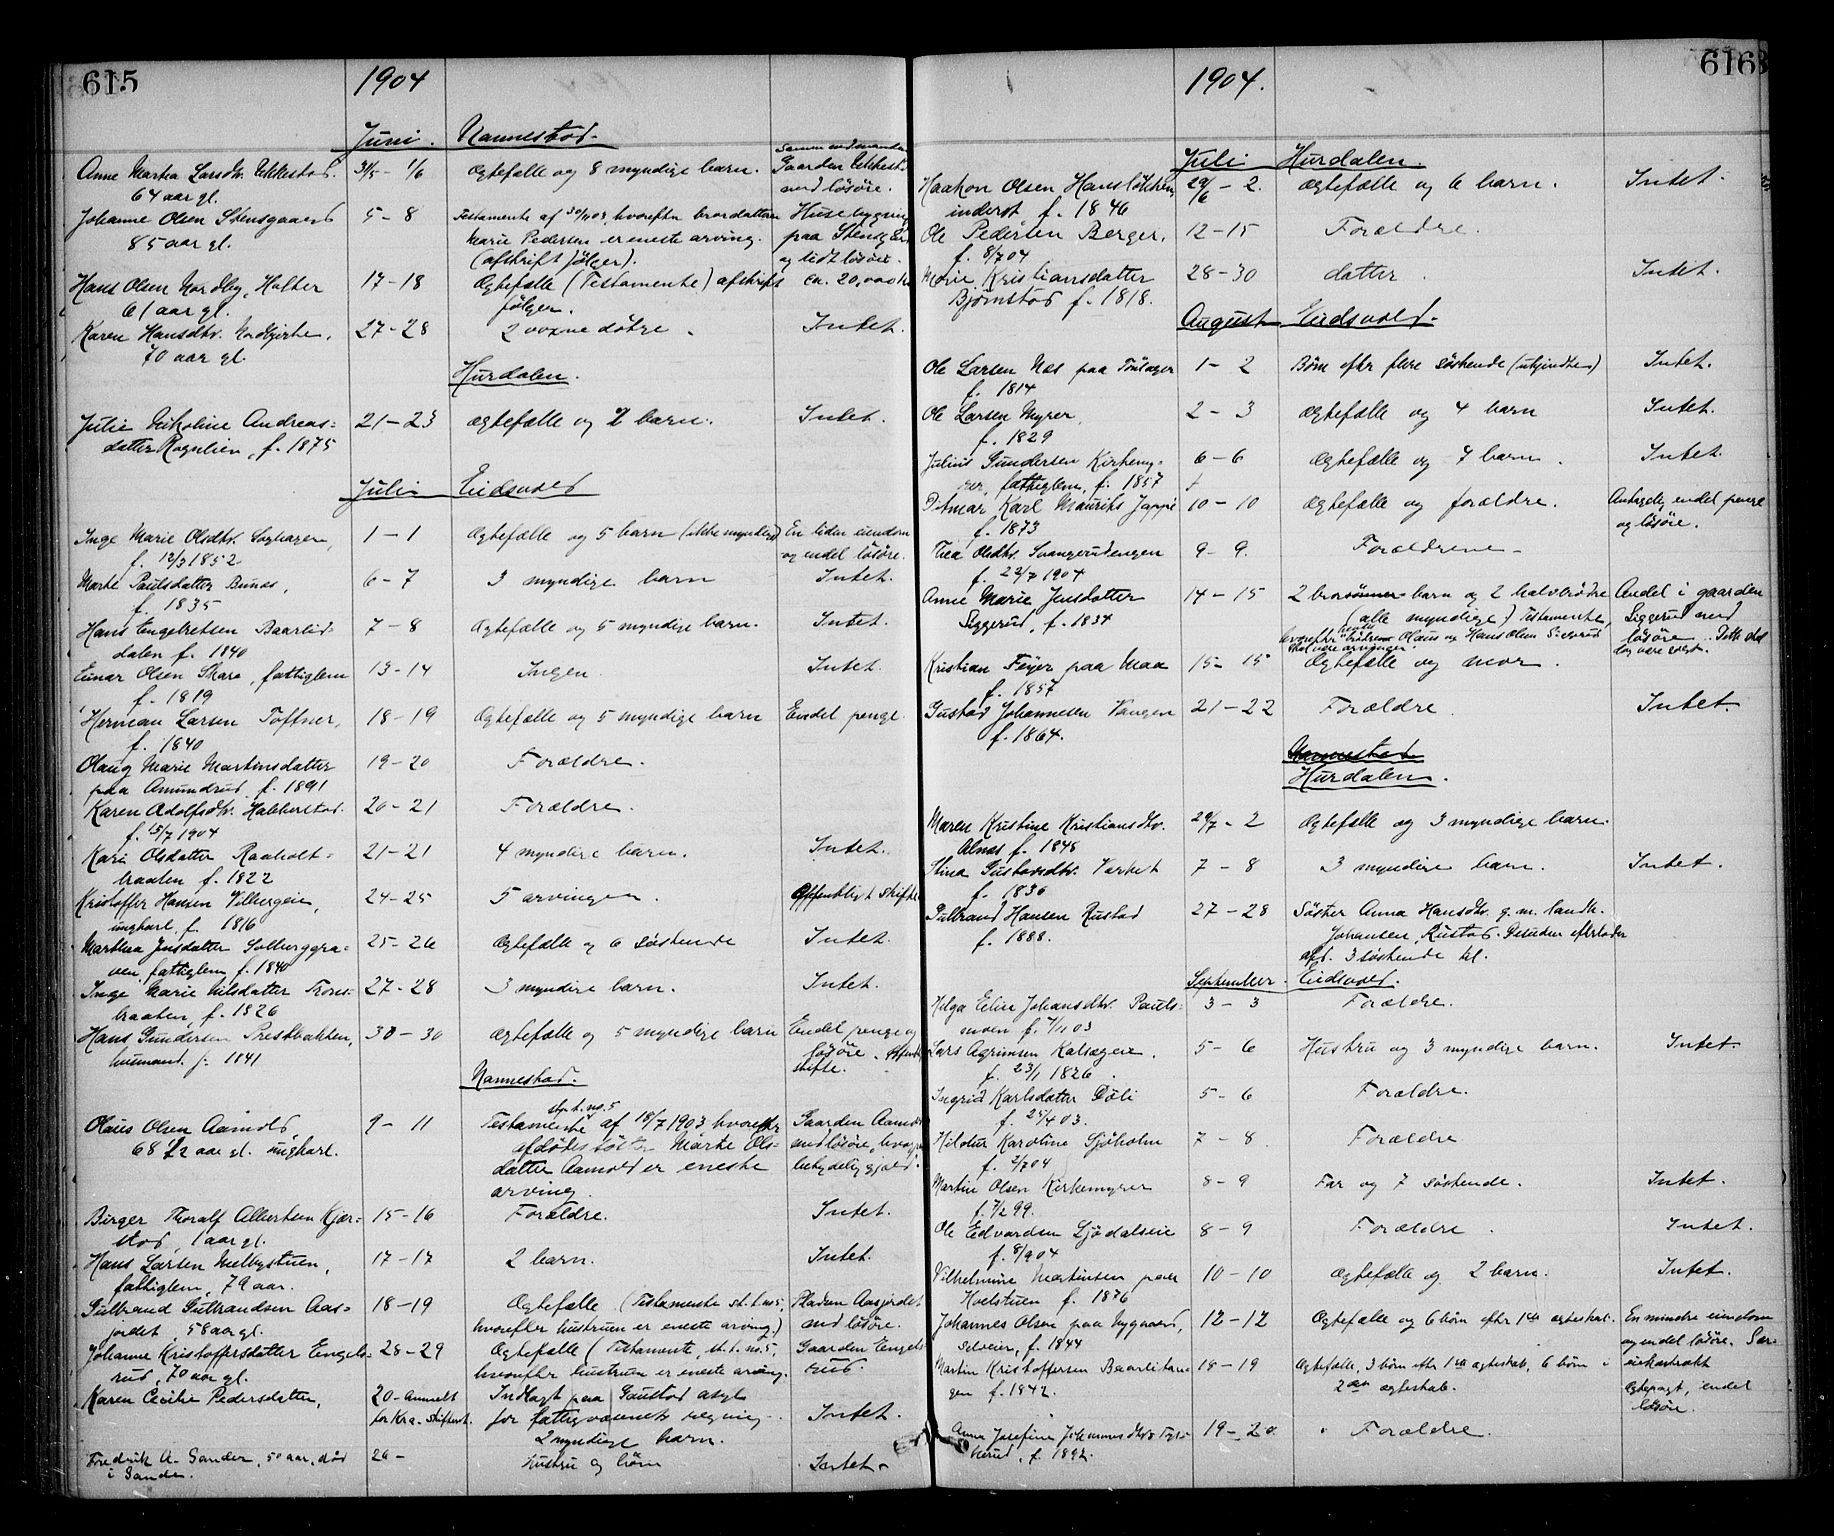 615
1904
Juni. Nannestad.
Anne Martea Larsdtr. Ukkestad. 31/5 - 1/6 Ægtefælle og 8 myndige barn. Gaarden Ukkest.
64 aar gl. med løsøre.
Johanne Olsen Stensgaard 5 - 8 Testamente af hvorefter brordatteren Husebygning
85 aar gl. Marie Pedersen er eneste arving. paa
(afskrift følger). og lidt løsøre.
Hans Olsen Nordby, Holter 17-18 Ægtefælle (Testamente) afskrift ca. 20,000 kr
61 aar gl. følger.
Karen Hansdtr. 27-28 2 voxne døtre. Intet.
70 aar gl.
Hurdalen.
Julie Nikoline Andreas- 21-23 ægtefælle og barn. Intet.
datter Rognlien, f. 1875
Juli Eidsvold
Inge Marie Olsdtr. 1 - 1 Ægtefælle og 5 barn (ikke myndige) En liden eiendom
f. 12/3 1852 og endel løsøre.
Marte Paulsdatter Bunes, 6-7 3 myndige barn Intet.
f. 1835
Hans Engebretsen Baarlid- 7-8 Ægtefælle og 5 myndige barn. Intet.
dalen f. 1840
Einar Olsen Skara, fattiglem 13-14 Ingen. Intet.
f. 1819
Herman Larsen Toftner, 18-19 Ægtefælle og 5 myndige barn Endel penge.
f. 1840
Olaug Marie Martinsdatter 19-20 Forældre.
paa Amundrud f. 1891
Karen Adolfsdtr. Habberstad. 20-21 Forældre.
f. 15/7 1904
Kari Olsdatter Raaholt- 21-21 4 myndige barn. Intet.
braaten f. 1822
Kristoffer Hansen Vilbergeie, 24-25 5 arvinger Offentligt skifte
ungkarl, f. 1816
Marthea Jensdatter Solberggra- 25-26 Ægtefælle og 6 søskende Intet.
ven, fattiglem f. 1840
Inge Marie Nilsdatter Trons- 27-28 3 myndige barn. Intet.
braaten, f. 1826
Hans Gundersen Prestbakken, 30-30 Ægtefælle og 5 myndige barn Endel penge og
husmand, f. 1841 løsøre.
skifte.
Nannestad.
Olaus Olsen Aamold, 9 - 11 Testamente af 18/7 1903 hvorefter Gaarden Aamold
68 1/2 aar gl. ungkarl. afdødes søster Marte Ols- med løsøre,
datter Aamold er eneste betydelig gjæld.
arving.
Birger Thoralf Albertsen Kjær- 15-16 Forældre. Intet.
stad, 1 aar gl.
Hans Larsen Melbystuen, 17-17 2 barn. Intet.
fattiglem, 79 aar.
Gulbrand Gulbrandsen Aas- 18-19 Ægtefælle (Testamente st. t. no 5, Pladsen Aasjordet
jordet, 58 aar gl. hvorefter hustruen er eneste arving.) med løsøre.
Johanne Kristoffersdatter Engels- 28-29 Ægtefælle (Testamente, st. t. no. 5, Gaarden Engels-
rud, 70 aar gl. hvorefter hustruen er eneste arving. rud.
Karen Cecilie Pedersdatter, 20- anmeldt Indlagt paa Gaustad asyl
for Kra. skifteret. for fattigvæsenets regning. Intet.
2 myndige barn.
Fredrik A. Sander, 50 aar, død 26- Hustru og børn Intet.
i Sander.
616
1904.
Juli Hurdalen.
Haakon Olsen Hansløkken, 29/6 - 2. Ægtefælle og 6 barn. Intet.
inderst, f. 1846
Ole Pedersen Berger, 12-15 Forældre.
f. 8/7 04
Marie Kristiansdatter 28-30 datter Intet.
Bjørnstad f. 1818.
August Eidsvold.
Ole Larsen Næs paa Tønsager 1 - 2 Børn efter flere søskende (ubekjendte) Intet.
f. 1814
Ole Larsen Myrer, 2 - 3 Ægtefælle og 4 barn Intet.
f. 1829
Julius Gundersen Kirkemy- 6-6 Ægtefælle og 7 barn. Intet.
rer, fattiglem, f. 1857
Ditmar Karl Mauritz Jappe 10-10 Ægtefælle og forældre. Antagelig endel penge
f. 1873 og løsøre.
Thea Olsdtr. Svangerudengen 9-9. Forældrene.
f. 22/7 1904
Anne Marie Jensdatter 14-15 2 brorsønner barn og 2 halvbrødre Andel i gaarden
Siggerud, f. 1834 (alle myndige) Testamente, Siggerud med
hvorefter Olaus og Hans Olsen Siggerud løsøre.
skal være arvinger.
Kristian Feyer paa Maa 15-15 Ægtefælle og mor.
f. 1857
Gustav Johannesen Vangen 21-22 Forældre Intet.
f. 1864.
Nannestad
Hurdalen.
Maren Kristine Kristiansdtr. 29/7 - 2 Ægtefælle og 3 myndige barn.
Alnæs f. 1848
Stina Gustavsdtr. Verket 7 - 8 3 myndige barn. Intet.
f. 1836
Gulbrand Hansen Rustad 27-28 Søster Anna Hansdtr. g. m. landh.
f. 1888. Johansen, Rustad. Desuden efterlader
afd. 3 søskende til.
September. Eidsvold.
Helga Elise Johansdtr. Pauls- 3-3 Forældre.
moen f. 7/11 03
Lars Agrimsen Kalsegeie. 5-6 Hustru og 3 myndige barn. Intet.
f. 23/1 1826
Ingrid Karlsdatter Døli 5-6 Forældre.
f. 25/4 03.
Hildur Karoline Sjøholm 7-8 Forældre
f. 2/7 04
Martin Olsen Kirkemyrer 8-9 Far og 7 søskende. Intet.
f. 7/2 99.
Ole Edvardsen Ljødalseie 8-9 Forældre. Intet.
f. 8/9 04
Vilhelmine Martinsen paa 10-10 Ægtefælle og 2 barn. Intet.
Hoelstuen f. 1876
Johannes Olsen paa Nygaard, 12-12 Ægtefælle og 6 børn efter 1ste ægteskab. En mindre eiendom
selveier, f. 1844 og endel løsøre.
Martin Kristoffersen Baarlitan- 18-19 Ægtefælle, 3 børn efter 1ste ægteskab, 6 børn i
gen f. 1842. 2den ægteskab. endel
løsøre.
Anne Josefine Johannesdtr. 19-20 Forældre.
f. 1892.